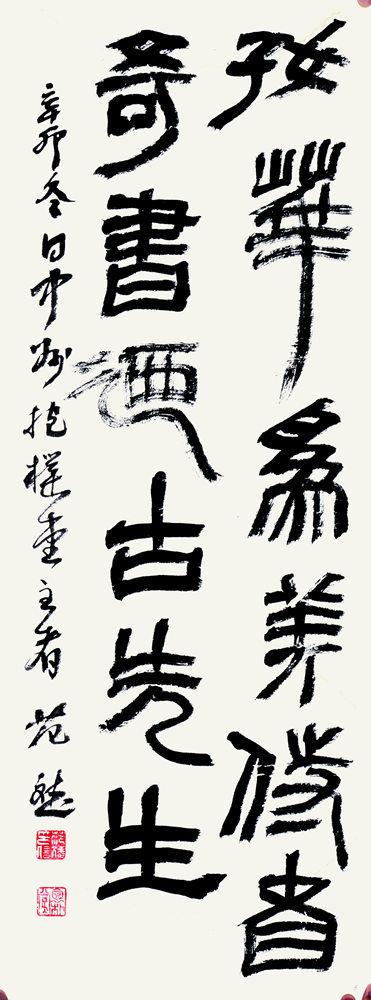 好華為美者
奇書迺古先生
辛卯冬日中州抱樸堂主者范